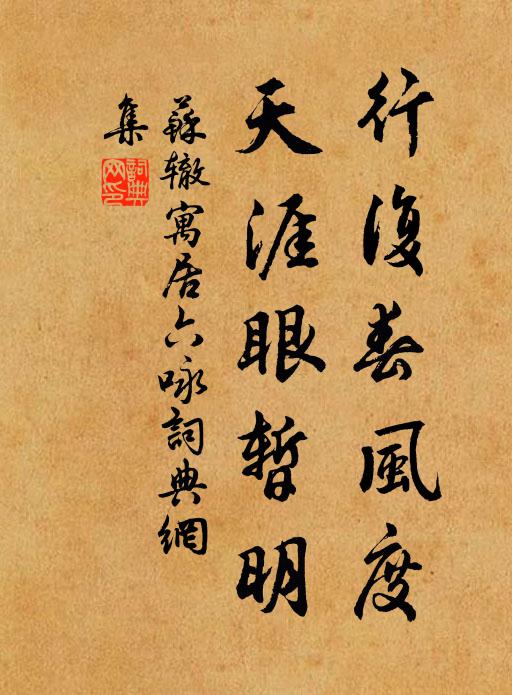 行復春風度
天涯眼暫明
蘇轍寓居六咏詞典網
集
詞典
网印